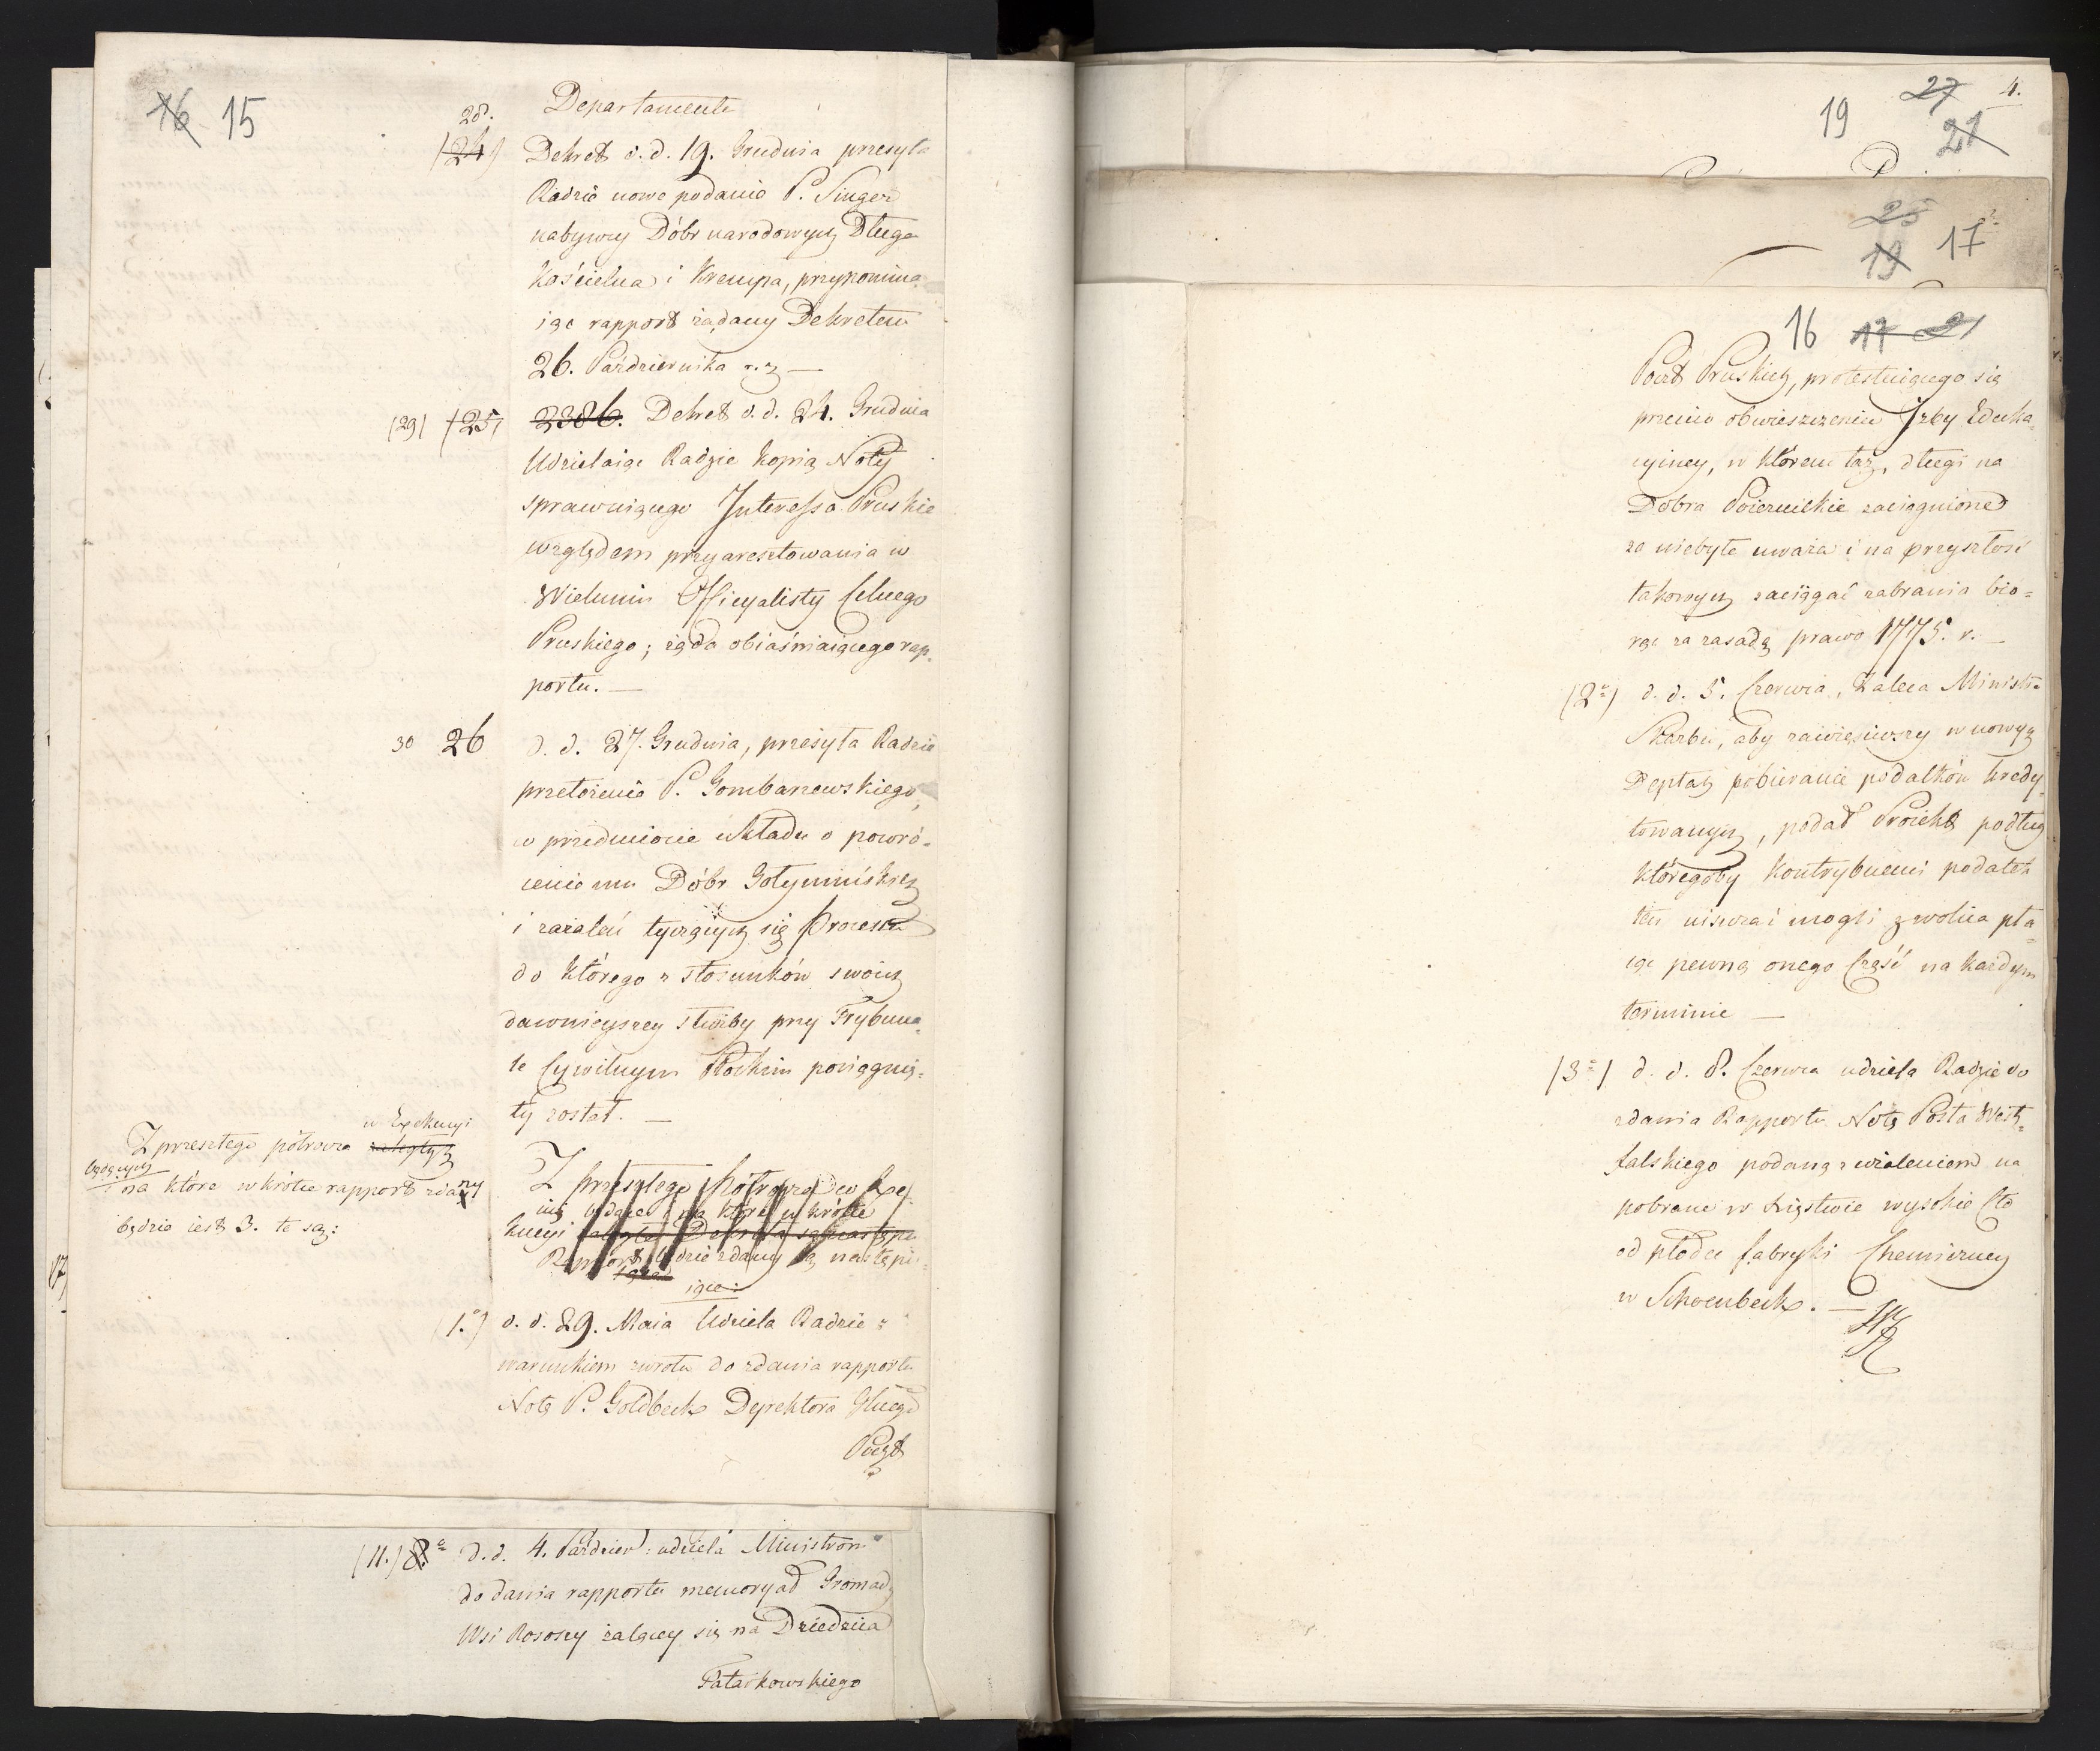 16 15
Departamentu
28.
(24) Dekret d. d. 19. Grudnia przesyła
Radzie nowe podanie P. Singer
nabywcy Dóbr narodowych Długa
Kościelna i Krempa, przypomina
iąc rapport żądany Dekretem
26. Października r. z —
(29) (25) 2386. Dekret d. d. 24. Grudnia
Udzielaiąc Radzie kopią Noty
sprawuiącego Interessa Pruskie
względem przyaresztowania w
Wieluniu Officyalisty Celnego
Pruskiego; żąda obiaśniaiącego rap-
portu. —
30 26 d. d. 27. Grudnia, przesyła Radzie
przełożenie P. Gombarzewskiego,
w przedmiocie układu o powró-
cenie mu Dóbr Gołymińskich
i zażaleń tyczących się Processu
do którego z stosunków swoich
dawnieyszey służby przy Trybuna-
le Cywilnym Płockim pociągnię-
ty został. —
w Expekucyi
Z przeszłego półrocza zaległych
będących
na które wkrótce rapport zdany
będzie iest 3. te są:
Z przeszłego półrocza w Exe-
kucyi
Rapport będzie zdany są następu-
iące:
(1.) d. d. 29. Maia Udziela Radzie z
warunkiem zwrotu do zdania rapportu
Notę P. Goldbeck Dyrektora Głnego
Poczt
(11.) 8. d. d. 4. Paździer: udziela Ministrom
do dania rapportu memoryał Gromady
Wsi Rososzy żalącey się na Dziedzica
Tatarkowskiego
27 4.
19 21
25
19 17
16 17 21
Poczt Pruskich, protestuiącego się
przeciw obwieszczeniu Izby Eduka-
cyiney, w którem taż, długi na
Dobra Poiezuickie zaciągnione
za niebyłe uważa i na przyszłość
takowych zaciągać zabrania bio-
rąc za zasadę prawo 1775. r. —
(2) d. d. 5. Czerwca, Zaleca Ministr.
Skarbu, aby zawiesiwszy w nowych
Deptach pobieranie podatków kredy-
towanych, podał Proiekt podług
któregoby Kontrybuenci podatek
ten uiszczać mogli zwolna pła-
cąc pewną onego Część na każdym
terminie —
(3) d. d. 8. Czerwca udziela Radzie do
zdania Rapportu Notę Posła West-
falskiego podaną z wcieleniem na
pobrane w Xięstwie wysokie Cło
od płodu fabryki Chemiczney
w Schoenbeck. —